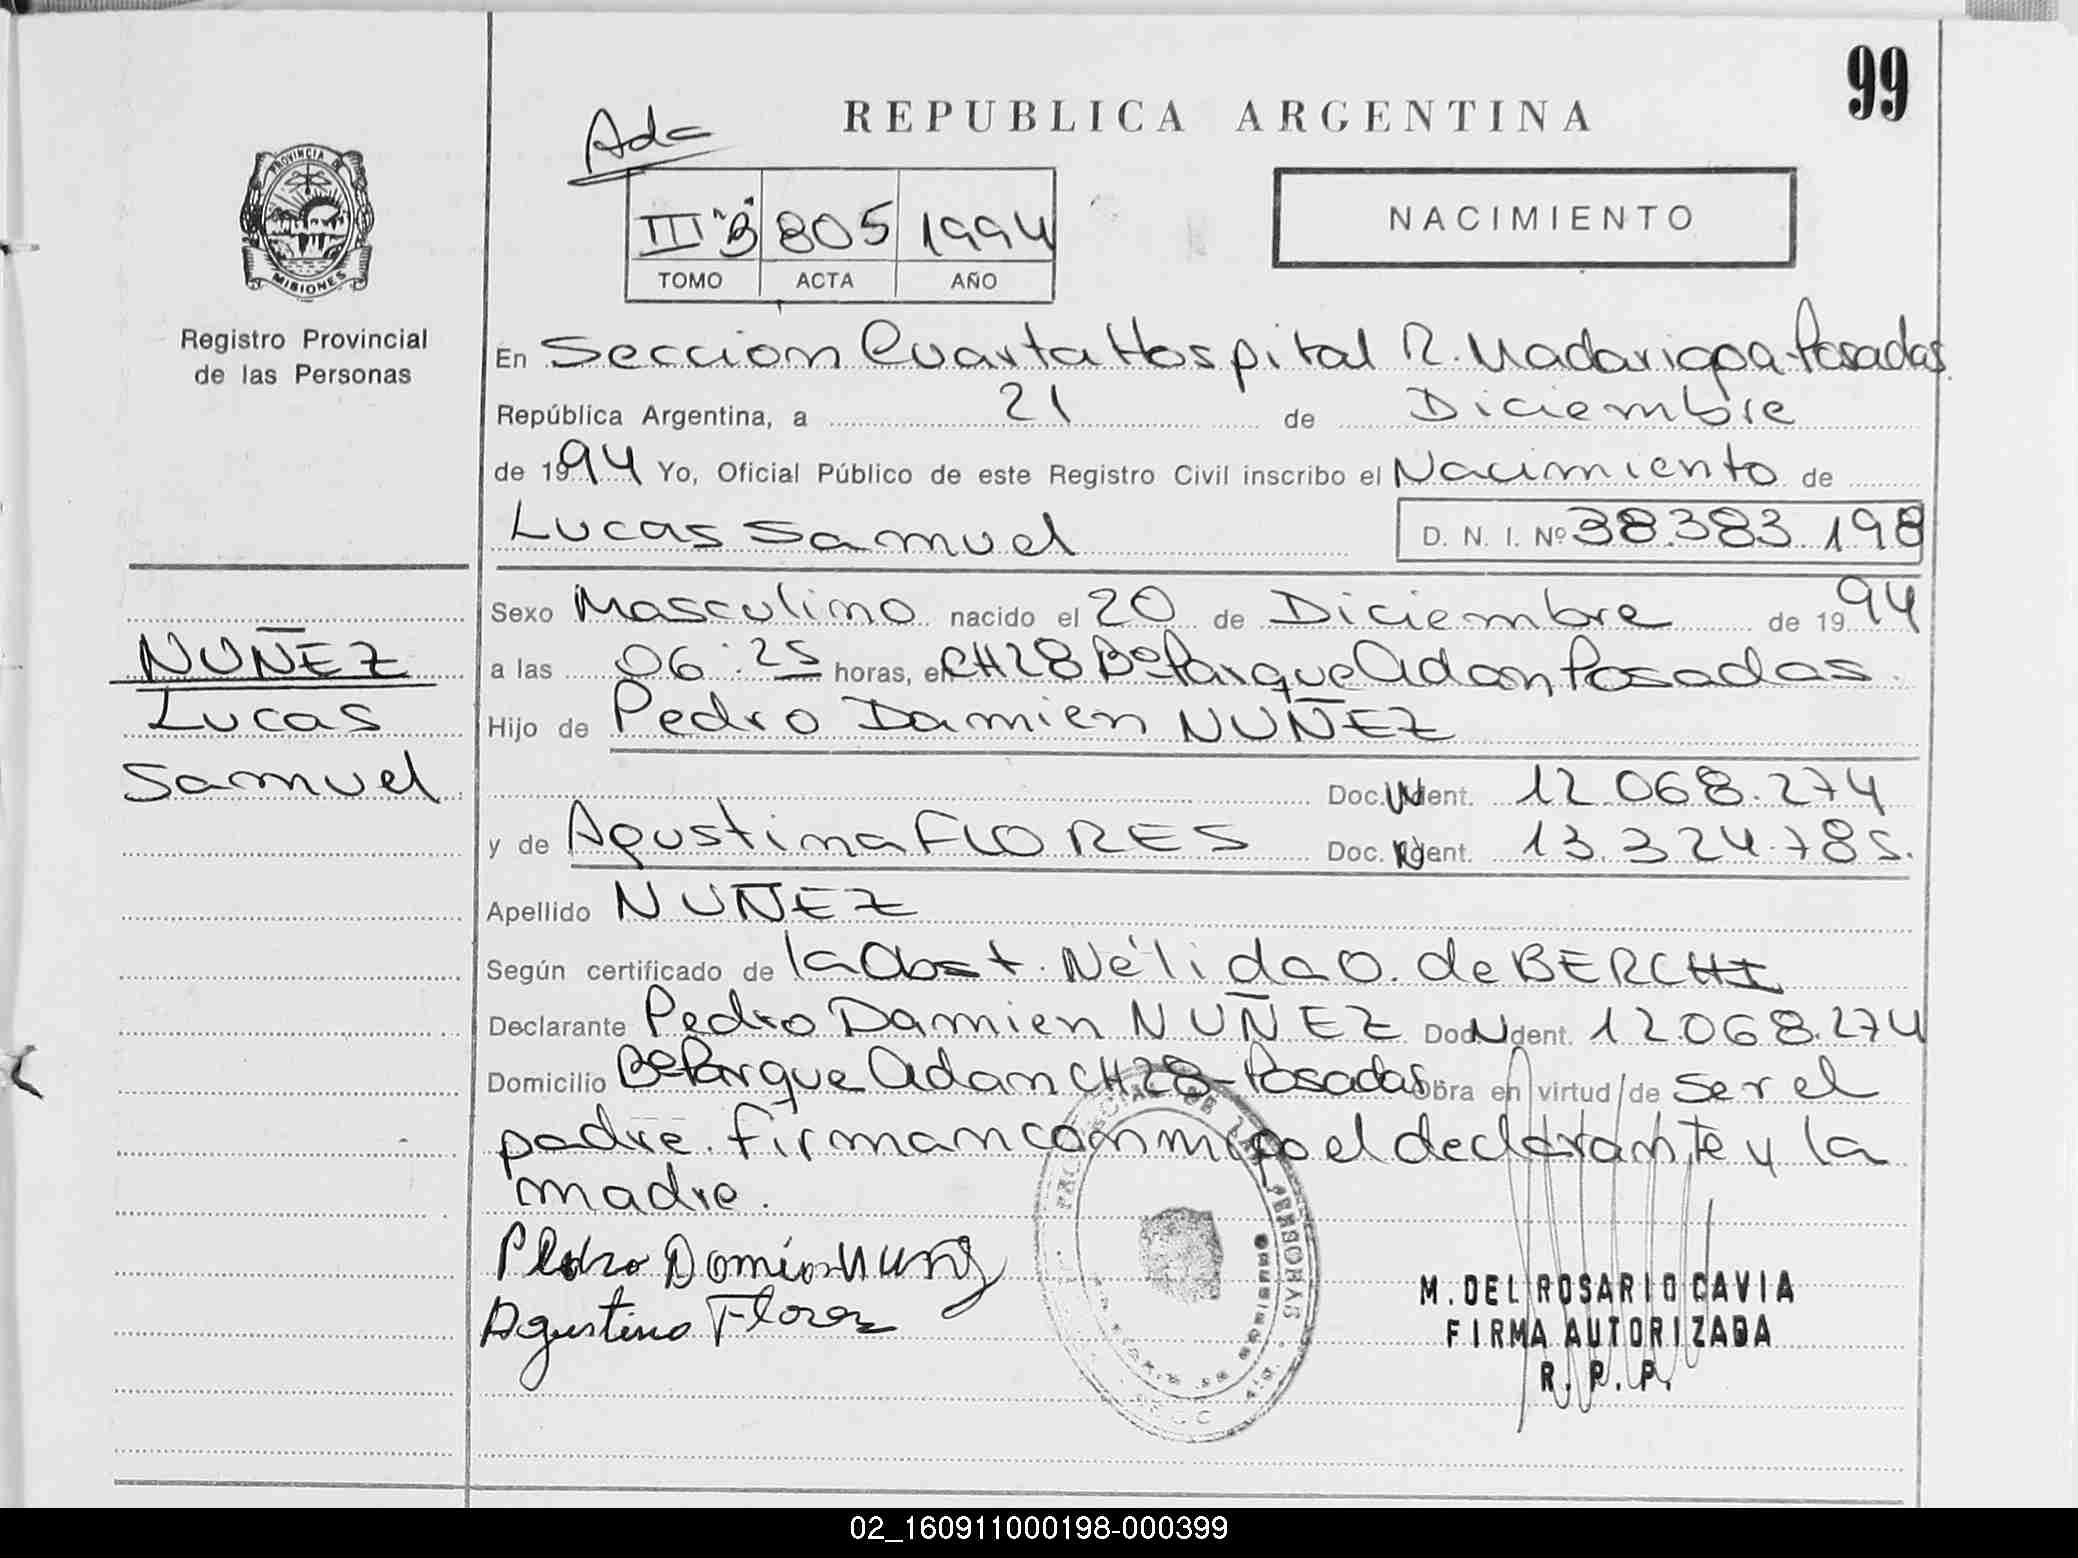 99
REPUBLICA ARGENTINA
Ada
III "B" 805 1994
TOMO ACTA AÑO
NACIMIENTO
PROVINCIA DE
MISIONES
Registro Provincial
de las Personas
En Seccion Cuarta Hospital R. Madariaga-Posadas
República Argentina, a 21 de Diciembre
de 1994 Yo, Oficial Público de este Registro Civil inscribo el Nacimiento de
Lucas Samuel D. N. I. Nº 38.383.198
Sexo Masculino nacido el 20 de Diciembre de 1994
a las 06:25 horas, en CH28 Bº Parque Adam Posadas.
Hijo de Pedro Damien NUÑEZ
Doc. Ident. 12.068.274
y de Agustina FLORES Doc. Ident. 13.324.785.
Apellido NUÑEZ
Según certificado de la Obst. Nélida O. de BERCHI
Declarante Pedro Damien NUÑEZ Doc. Ident. 12.068.274
Domicilio Bº Parque Adam CH 28-Posadas. Obra en virtud de ser el
padre. Firman conmigo el declarante y la
madre.
NUÑEZ
Lucas
Samuel
Agustina Florez
M. DEL ROSARIO CAVIA
FIRMA AUTORIZADA
R. P. P.
02_160911000198-000399